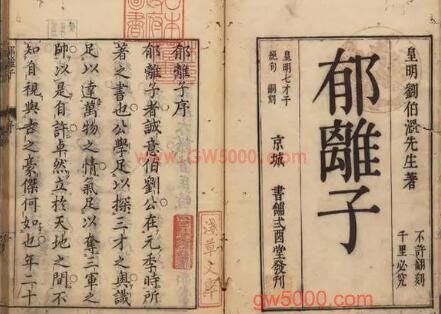 皇明劉伯溫先生著
不許翻刻
千里必究
郁離子
京城 書舖弎酉堂發刋
皇明七才子
絕句 嗣刻
郁離子序
郁離子者誠意伯劉公在元季時所
著之書也公學足以探三才之奧識
足以達萬物之情氣足以奪三軍之
帥以是自許卓然立於天地之間不
知自視與古之豪傑何如也年二十
日本政府圖書
淺草文庫
www.GW5000.com
gw5000.com